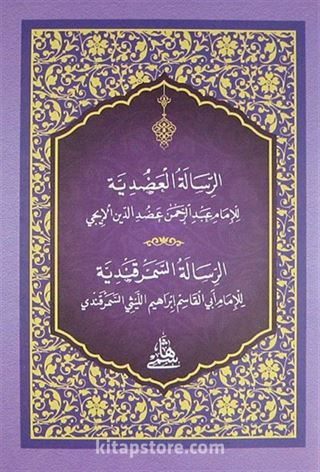 الرِّسَالَةُ الْعَضُدِيَّة
لِلْإِمَامِ عَبْدِ الرَّحْمٰنِ عَضُدِ الدِّينِ الْإِيجِي
الرِّسَالَةُ السَّمَرْقَنْدِيَّة
لِلْإِمَامِ أَبِي الْقَاسِمِ إِبْرَاهِيمَ اللَّيْثِي السَّمَرْقَنْدِي
kitapstore.com